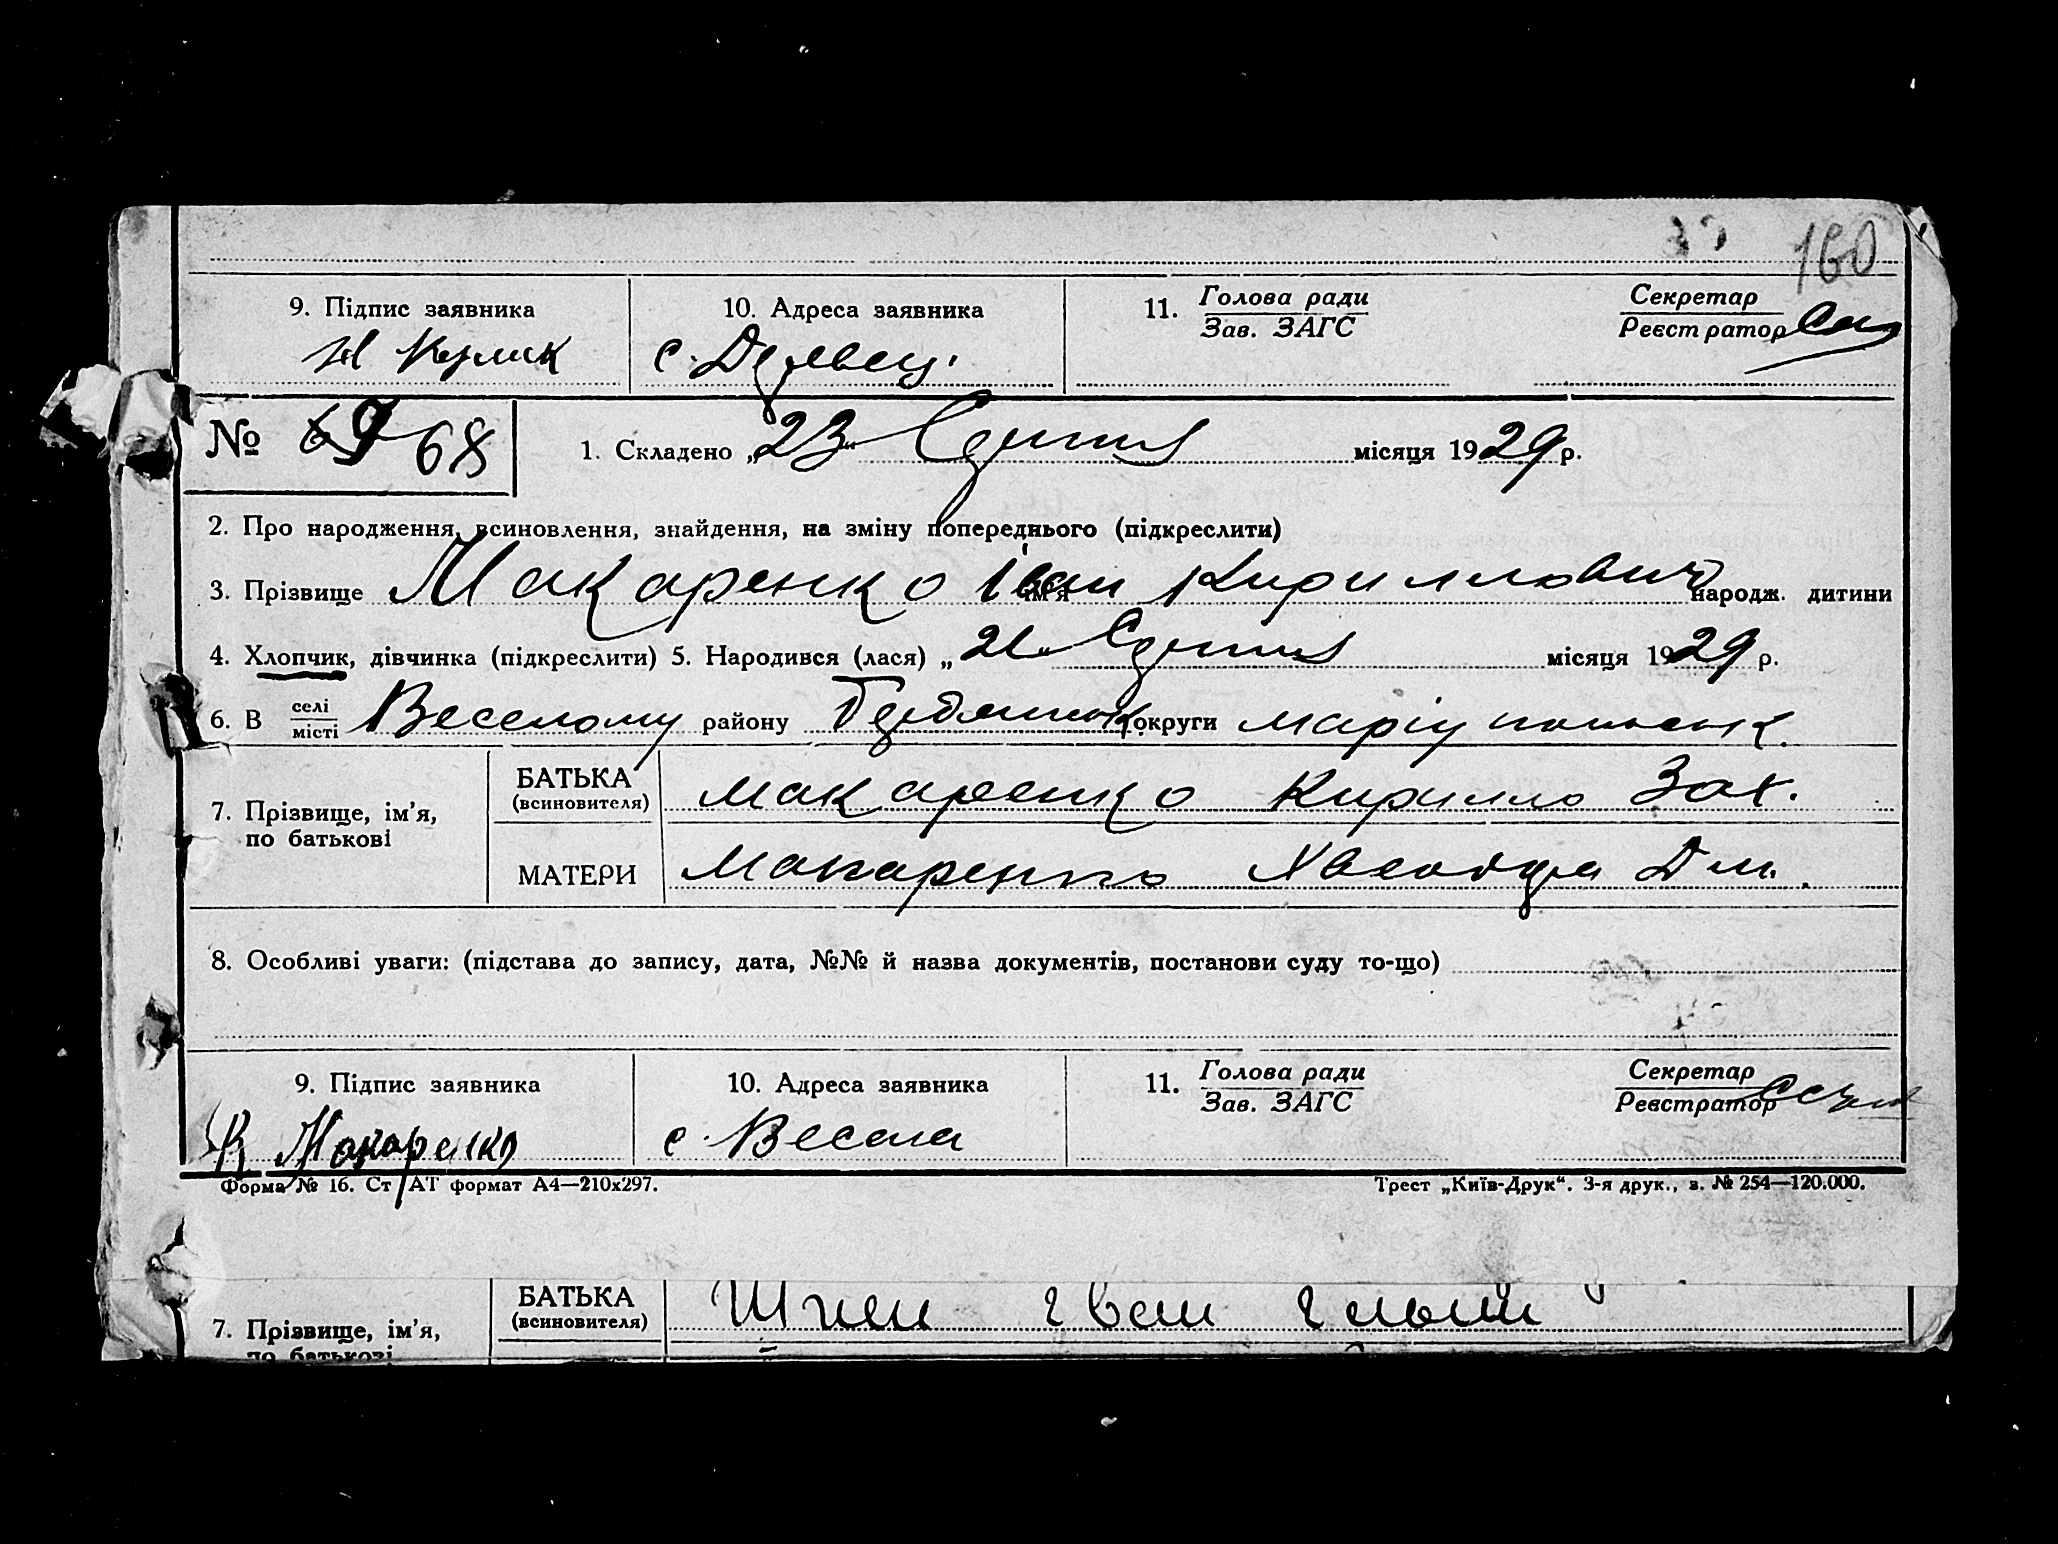 160
9. Підпис заявника 10. Адреса заявника 11. Голова ради Секретар
Зав. ЗАГС Реєстратор
Кулик с.
№ 69 68 1. Складено „23“ Серпня місяця 1929 р.
2. Про народження, всиновлення, знайдення, на зміну попереднього (підкреслити)
3. Прізвище Макаренко Іван Кириллович народж. дитини
4. Хлопчик, дівчинка (підкреслити) 5. Народився (лася) „21“ Серпня місяця 1929 р.
6. В селі Веселому району округи Маріупольськ.
місті
БАТЬКА Макаренко Кирилло Зах.
(всиновителя)
7. Прізвище, ім’я,
по батькові
МАТЕРИ Макаренко Дм.
8. Особливі уваги: (підстава до запису, дата, №№ й назва документів, постанови суду то-що)
9. Підпис заявника 10. Адреса заявника 11. Голова ради Секретар
Зав. ЗАГС Реєстратор
К Макаренко с. Весела
Форма № 16. Ст АТ формат А4—210х297. Трест „Київ-Друк“. 3-я друк., з. № 254—120.000.
БАТЬКА
(всиновителя)
7. Прізвище, ім’я,
по батькові